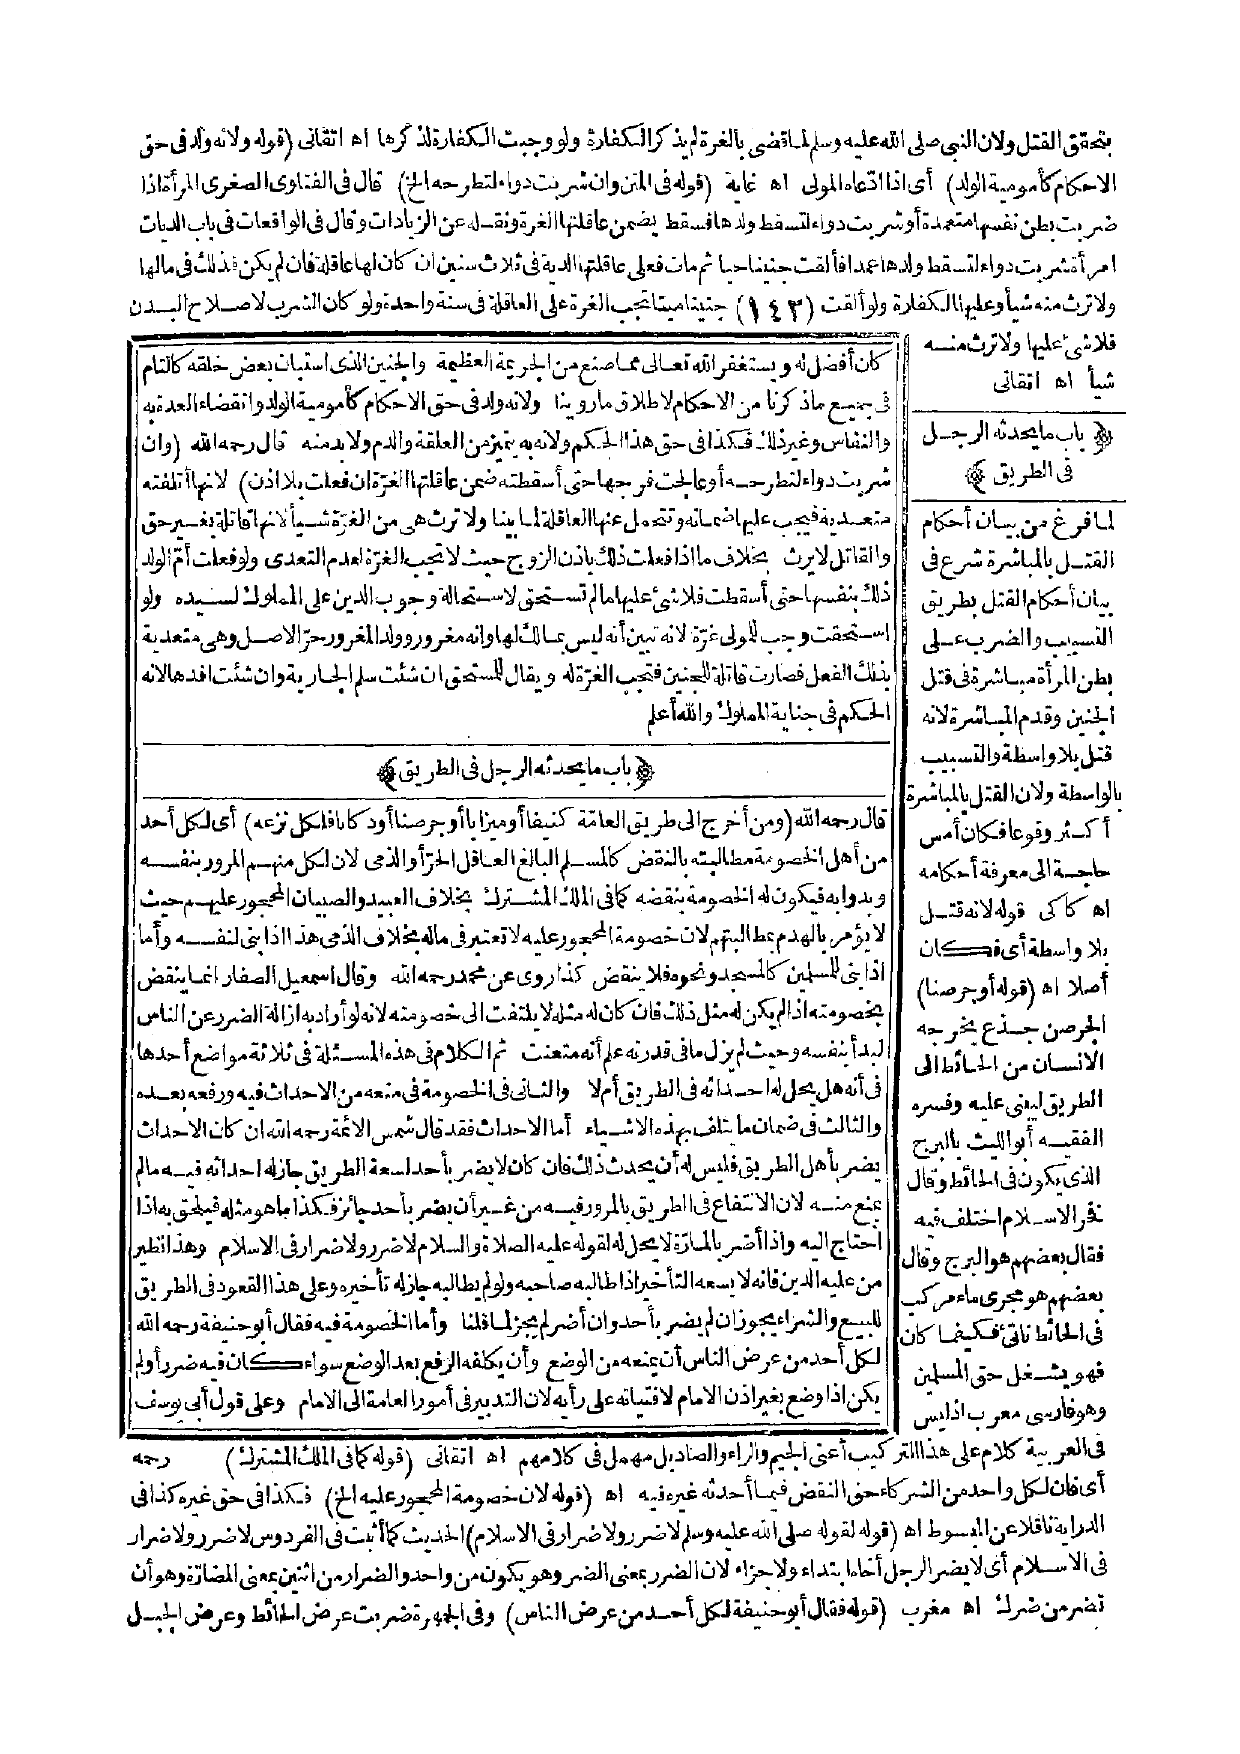 يتحقق القتل ولان النبى صلى الله عليه وسلم لما قضى بالغرة لم يذكر الكفارة ولو وجبت الكفارة لذكرها اه اتقانى (قوله ولانه ولد فى حق
الاحكام كأمومية الولد) أى اذا ادّعاه المولى اه غاية (قوله فى المتن وان شربت دواء لتطرحه الخ) قال فى الفتاوى الصغرى المرأة اذا
ضربت بطن نفسها متعمدة أو شربت دواء لتسقط ولدها فسقط يضمن عاقلتها الغرة ونقله عن الزيادات وقال فى الواقعات فى باب الديات
امرأة شربت دواء لتسقط ولدها عمدا فألقت جنينا حيا ثم مات فعلى عاقلتها الدية فى ثلاث سنين ان كان لها عاقلة فان لم يكن فذلك فى مالها
ولا ترث منه شيأ وعليها الكفارة ولو ألقت (١٤٣) جنينا ميتا تجب الغرة على العاقلة فى سنة واحدة ولو كان الشرب لاصلاح البدن
فلا شئ عليها ولا ترث منه
شيأ اه اتقانى
﴿باب ما يحدثه الرجل
فى الطريق﴾
لما فرغ من بيان أحكام
القتل بالمباشرة شرع فى
بيان أحكام القتل بطريق
التسبيب والضرب على
بطن المرأة مباشرة فى قتل
الجنين وقدم المباشرة لانه
قتل بلا واسطة والتسبيب
بالواسطة ولان القتل بالمباشرة
أكثر وقوعا فكان أمس
حاجة الى معرفة أحكامه
اه كاكى قوله لانه قتل
بلا واسطة أى فكان
أصلا اه (قوله أو جرصنا)
الجرصن جذع يخرجه
الانسان من الحائط الى
الطريق ليبنى عليه وفسره
الفقيه أبو الليث بالبرج
الذى يكون فى الحائط وقال
فخر الاسلام اختلف فيه
فقال بعضهم هو البرج وقال
بعضهم هو مجرى ماء مركب
فى الحائط ناتئ فكيفما كان
فهو يشغل حق المسلمين
وهو فارسى معرب اذ ليس
كان أفضل له ويستغفر الله تعالى مما صنع من الجريمة العظيمة والجنين الذى استبان بعض خلقه كالتام
فى جميع ما ذكرنا من الاحكام لاطلاق ما روينا ولانه ولد فى حق الاحكام كأمومية الولد وانقضاء العدة به
والنفاس وغير ذلك فكذا فى حق هذا الحكم ولانه به يتميز من العلقة والدم ولا بد منه قال رحمه الله (وان
شربت دواء لتطرحه أو عالجت فرجها حتى أسقطته ضمن عاقلتها الغرّة ان فعلت بلا اذن) لانها أتلفته
متعدية فيجب عليها ضمانه وتتحمل عنها العاقلة لما بينا ولا ترث هى من الغرّة شيأ لانها قاتلة بغير حق
والقاتل لا يرث بخلاف ما اذا فعلت ذلك باذن الزوج حيث لا تجب الغرة لعدم التعدى ولو فعلت أمّ الولد
ذلك بنفسها حتى أسقطت فلا شئ عليها ما لم تستحق لاستحالة وجوب الدين على المملوك لسيده ولو
استحقت وجب للمولى غرّة لانه تبين أنه ليس بمالك لها وانه مغرور وولد المغرور حرّ الاصل وهى متعدية
بذلك الفعل فصارت قاتلة للجنين فتجب الغرّة له ويقال للمستحق ان شئت سلم الجارية وان شئت افدها لانه
الحكم فى جناية المملوك والله أعلم
﴿باب ما يحدثه الرجل فى الطريق﴾
قال رحمه الله (ومن أخرج الى طريق العامّة كنيفا أو ميزابا أو جرصنا أو دكانا فلكل نزعه) أى لكل أحد
من أهل الخصومة مطالبته بالنقض كالمسلم البالغ العاقل الحرّ أو الذمى لان لكل منهم المرور بنفسه
وبدوابه فيكون له الخصومة بنقضه كما فى الملك المشترك بخلاف العبيد والصبيان المحجور عليهم حيث
لا يؤمر بالهدم بمطالبتهم لان خصومة المحجور عليه لا تعتبر فى ماله بخلاف الذمى هذا اذا بنى لنفسه وأما
اذا بنى للمسلمين كالمسجد ونحوه فلا ينقض كذا روى عن محمد رحمه الله وقال اسمعيل الصفار انما ينقض
بخصومته اذا لم يكن له مثل ذلك فان كان له مثله لا يلتفت الى خصومته لانه لو أراد به ازالة الضرر عن الناس
لبدأ بنفسه وحيث لم يزل ما فى قدرته علم أنه متعنت ثم الكلام فى هذه المسئلة فى ثلاثة مواضع أحدها
فى أنه هل يحل له احداثه فى الطريق أم لا والثانى فى الخصومة فى منعه من الاحداث فيه ورفعه بعده
والثالث فى ضمان ما يتلف بهذه الاشياء أما الاحداث فقد قال شمس الائمة رحمه الله ان كان الاحداث
يضر بأهل الطريق فليس له أن يحدث ذلك فان كان لا يضر بأحد لسعة الطريق جاز له احداثه فيه مالم
يمنع منه لان الانتفاع فى الطريق بالمرور فيه من غير أن يضر بأحد جائز فكذا ما هو مثله فيلحق به اذا
احتاج اليه واذا أضر بالمارّة لا يحل له لقوله عليه الصلاة والسلام لا ضرر ولا ضرار فى الاسلام وهذا نظير
من عليه الدين فانه لا يسعه التأخير اذا طالبه صاحبه ولو لم يطالبه جاز له تأخيره وعلى هذا القعود فى الطريق
للبيع والشراء يجوز ان لم يضر بأحد وان أضر لم يجز لما قلنا وأما الخصومة فيه فقال أبو حنيفة رحمه الله
لكل أحد من عرض الناس أن يمنعه من الوضع وأن يكلفه الرفع بعد الوضع سواء كان فيه ضرر أو لم
يكن اذا وضع بغير اذن الامام لافتياته على رأيه لان التدبير فى أمور العامة الى الامام وعلى قول أبى يوسف
فى العربية كلام على هذا التركيب أعنى الجيم والراء والصاد بل مهمل فى كلامهم اه اتقانى (قوله كما فى الملك المشترك) رحمه
أى فان لكل واحد من الشركاء حق النقض فيما أحدثه غيره فيه اه (قوله لان خصومة المحجور عليه الخ) فكذا فى حق غيره كذا فى
الدراية ناقلا عن المبسوط اه (قوله لقوله صلى الله عليه وسلم لا ضرر ولا ضرار فى الاسلام) الحديث كما أثبت فى الفردوس لا ضرر ولا ضرار
فى الاسلام أى لا يضر الرجل أخاه ابتداء ولا جزاء لان الضرر بمعنى الضر وهو يكون من واحد والضرار من اثنين بمعنى المضارّة وهو أن
تضر من ضرك اه مغرب (قوله فقال أبو حنيفة لكل أحد من عرض الناس) وفى الجمهرة ضربت عرض الحائط وعرض الجبل